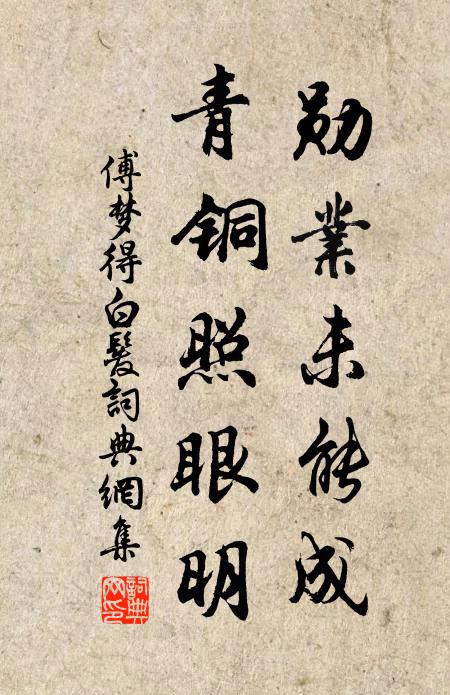 勋業未能成
青铜照眼明
傅梦得白髮詞典網集
詞典网印